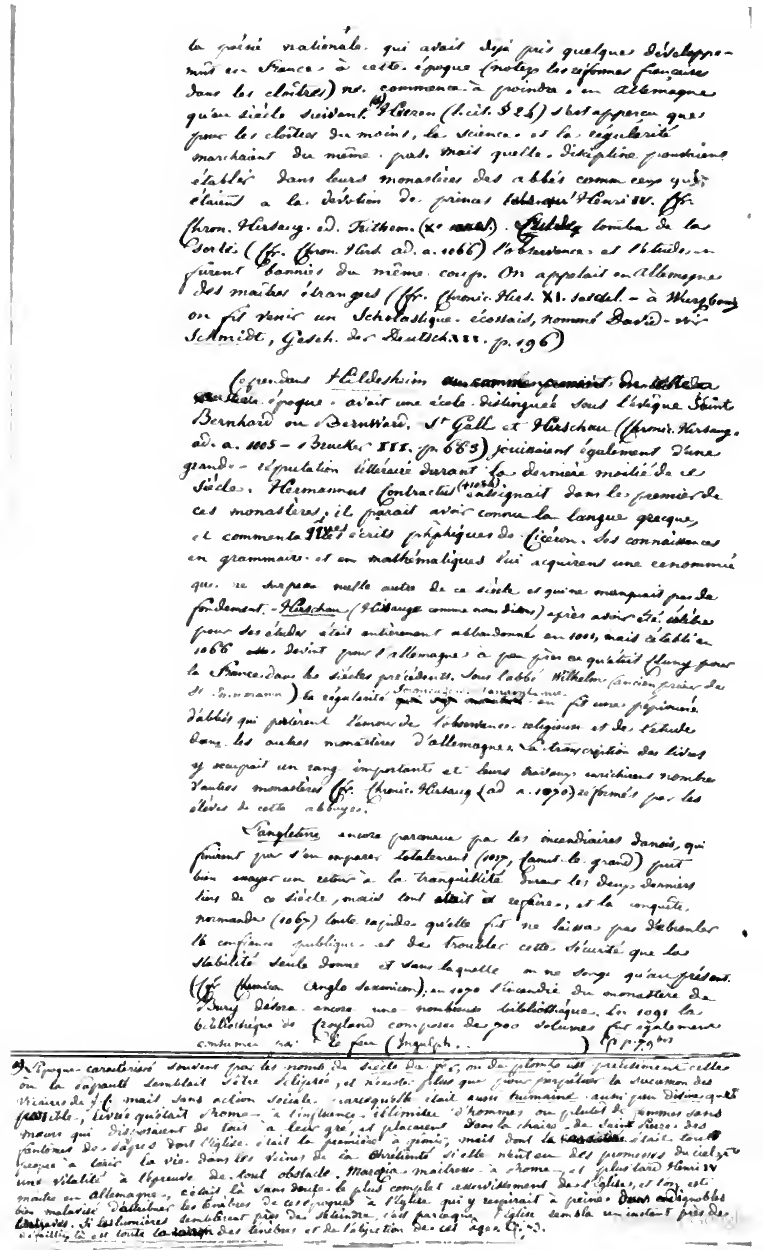 la poésie nationale qui avait déjà pris quelques développe-
ments en France à cette époque (notez les réformes françaises
dans les cloîtres) ne commença à poindre en Allemagne
qu'au siècle suivant. (a) Heeren (l. cit. § 24) s'est apperçu que
pour les cloîtres du moins, la science et la régularité
marchaient du même pas. Mais quelle discipline pouvaient
établir dans leurs monastères des abbés comme ceux qui
étaient à la dévotion de princes tels que Henri IV. Cfr.
Chron. Hirsaug. ed. Trithem. (X). tomba de la
sorte (Cfr. Chron. Hirs. ad. a. 1066) l'observance et l'étude en
furent bannies du même coup. On appelait en Allemagne
des maîtres étrangers (Cfr. Chronic. Hirs. XI. - à Wurzbourg
on fit venir un Scholastique écossais, nommé David - voir
Schmidt, Gesch. der Deutsch. III. p. 196)
Cependant Hildesheim
époque avait une école distinguée sous l'évêque Saint
Bernhard ou Bernward. St Gall et Hirschau (Chronic. Hirsaug.
ad. a. 1005 - Brucker III. p. 665) jouissaient également d'une
grande réputation littéraire durant la dernière moitié de ce
siècle. Hermannus Contractus (+1054) enseignait dans le premier de
ces monastères, il paraît avoir connu la langue grecque,
et commenta qques écrits phphiques de Cicéron. Ses connaissances
en grammaire et en mathématiques lui acquirent une renommée
que ne surpassa nulle autre de ce siècle et qui ne manquait pas de
fondement. - Hirschau (Hirsauge comme nous disons) après avoir été célèbre
pour ses études était entièrement abbandonné en 1001, mais rétabli en
1066 devint pour l'allemagne à peu près ce qu'était Cluny pour
la France dans les siècles précédents. Sous l'abbé Wilhelm (ancien prieur de
St Emmeramm) la régularité en fit une pépinière
d'abbés qui portèrent l'amour de l'observance religieuse et de l'étude
dans les autres monastères d'allemagne. La transcription des livres
y occupait un rang important et leurs travaux enrichirent nombre
d'autres monastères (Cfr. Chronic. Hirsaug. (ad a. 1070) réformés par les
élèves de cette abbaye.
L'angleterre encore parcourue par les incendiaires danois, qui
finirent par s'en emparer totalement (1017, Canut le grand) put
bien essayer un retour à la tranquillité durant les deux derniers
tiers de ce siècle, mais tout était à refaire, et la conquête
normande (1067) toute rapide qu'elle fut ne laissa pas d'ébranler
la confiance publique et de troubler cette sécurité que la
stabilité seule donne et sans laquelle on ne songe qu'au présent.
(Cfr Chronicon Anglo Saxonicum); en 1070 l'incendie du monastère de
Bury dévora encore une nombreuse bibliothèque. En 1091 la
bibliothèque de Croyland composée de 700 volumes fut également
consumée par le feu (Ingulph. . ) (p. 79 bis
a) L'époque caractérisée souvent par les noms de siècle de fer, ou de plomb est précisément celle
où la papauté semblait s'être éclipsée, et n'existe plus que pour perpétuer la succession des
vicaires de J.C. mais sans action sociale presqu'elle était aussi humaine aussi peu divine que
possible, livrée qu'était Rome à l'influence illimitée d'hommes ou plutôt de femmes sans
moeurs qui disposaient de tout à leur gré, et placèrent dans la chaire de Saint Pierre des
fantômes de papes dont l'Eglise était la première à gémir, mais dont la était toute
propre à tarir la vie dans les veines de la chrétienté si elle n'eût eu des promesses du ciel
une vitalité à l'épreuve de tout obstacle. Marozia maîtresse à Rome, et plus tard Henri IV
maître en Allemagne, c'était là sans doute le plus complet asservissement de l'Eglise, et l'on est
bien malavisé d'attribuer les ténèbres de ces époques à l'Eglise qui y respirait à peine dans
Si les lumières semblèrent près de s'éteindre c'est parceque l'Eglise sembla un instant près de
défaillir là est toute la raison des ténèbres et de l'abjection de cet âge.